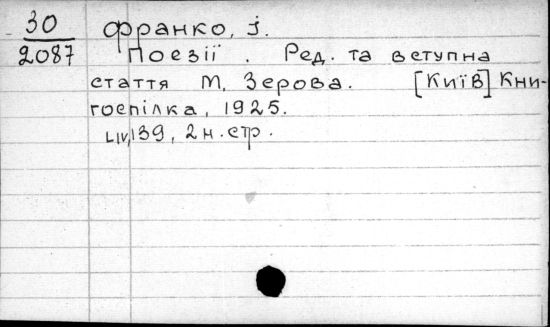 30
2087
Франко, І.
Поезії. Ред. та вступна
стаття М. Зерова. [Київ] Кни-
госпілка, 1925.
LIV, 139, 2 н. стр.